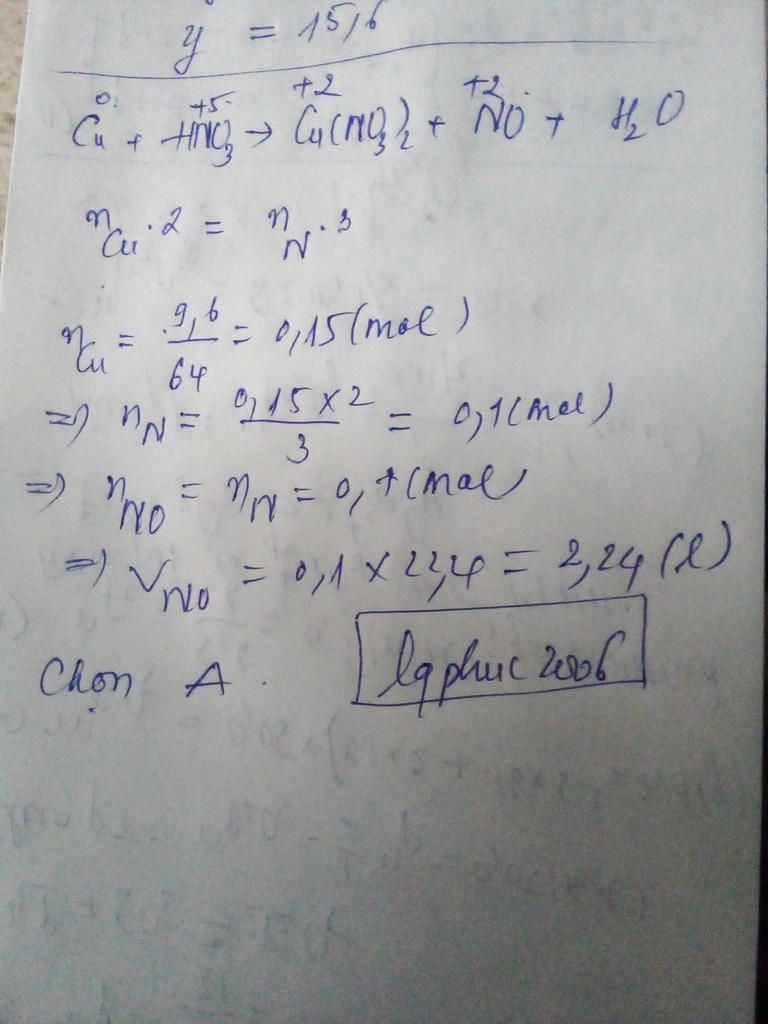 y = 15,6
0 +5 +2 +2
Cu + HNO3 → Cu(NO3)2 + NO + H2O
nCu . 2 = nN . 3
nCu = 9,6/64 = 0,15 (mol)
=) nN = 0,15 x 2/3 = 0,1 (mol)
=) nNO = nN = 0,1 (mol
=) VNO = 0,1 x 22,4 = 2,24 (l)
Chọn A.
lqphuc2006